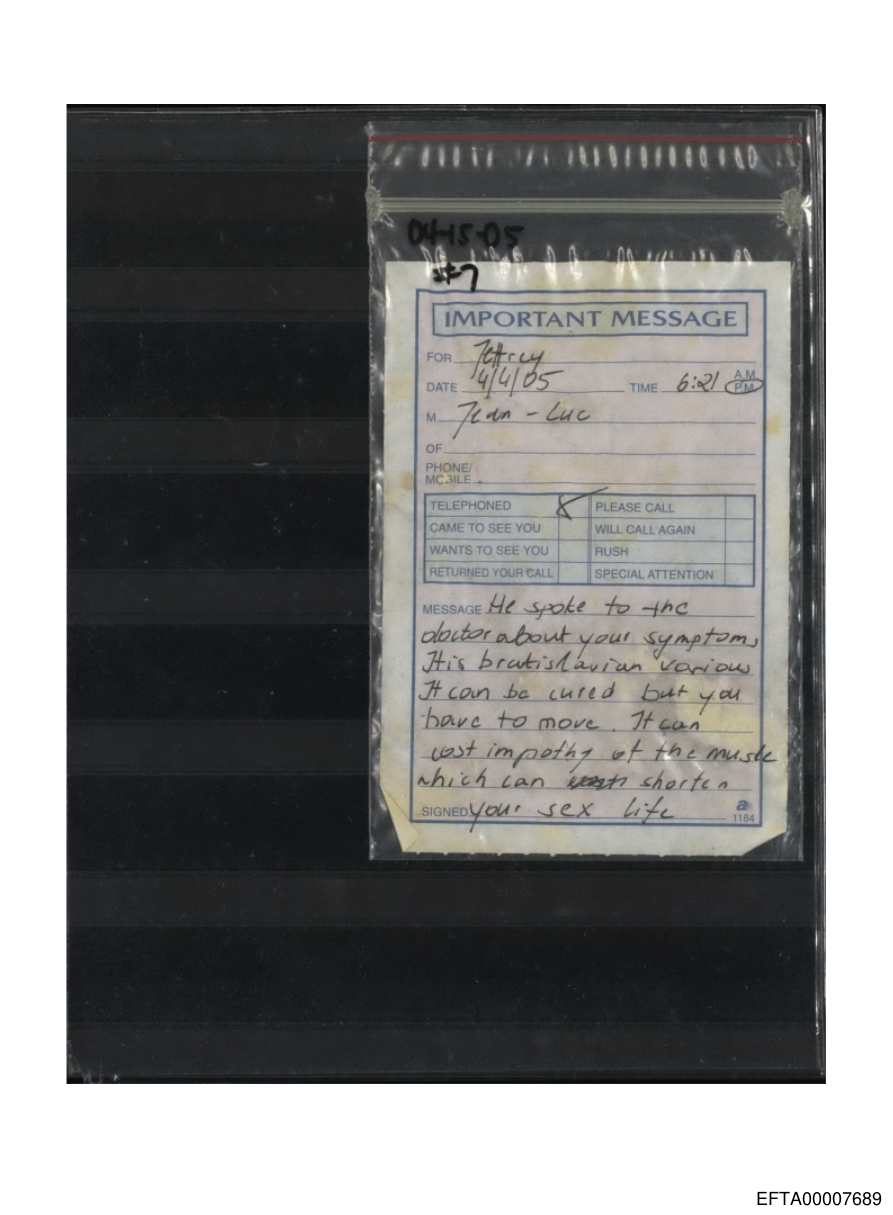 04-15-05
#7
IMPORTANT MESSAGE
FOR Jeffrey
DATE 4/4/05 TIME 6:21 A.M. P.M.
M Jean-Luc
OF
PHONE/
MOBILE
TELEPHONED PLEASE CALL
CAME TO SEE YOU WILL CALL AGAIN
WANTS TO SEE YOU RUSH
RETURNED YOUR CALL SPECIAL ATTENTION
MESSAGE He spoke to the
doctor about your symptoms
It is bratislavian
It can be cured but you
have to move. It can
impathy of the muscle
which can shorten
SIGNED your sex life
a
1184
EFTA00007689